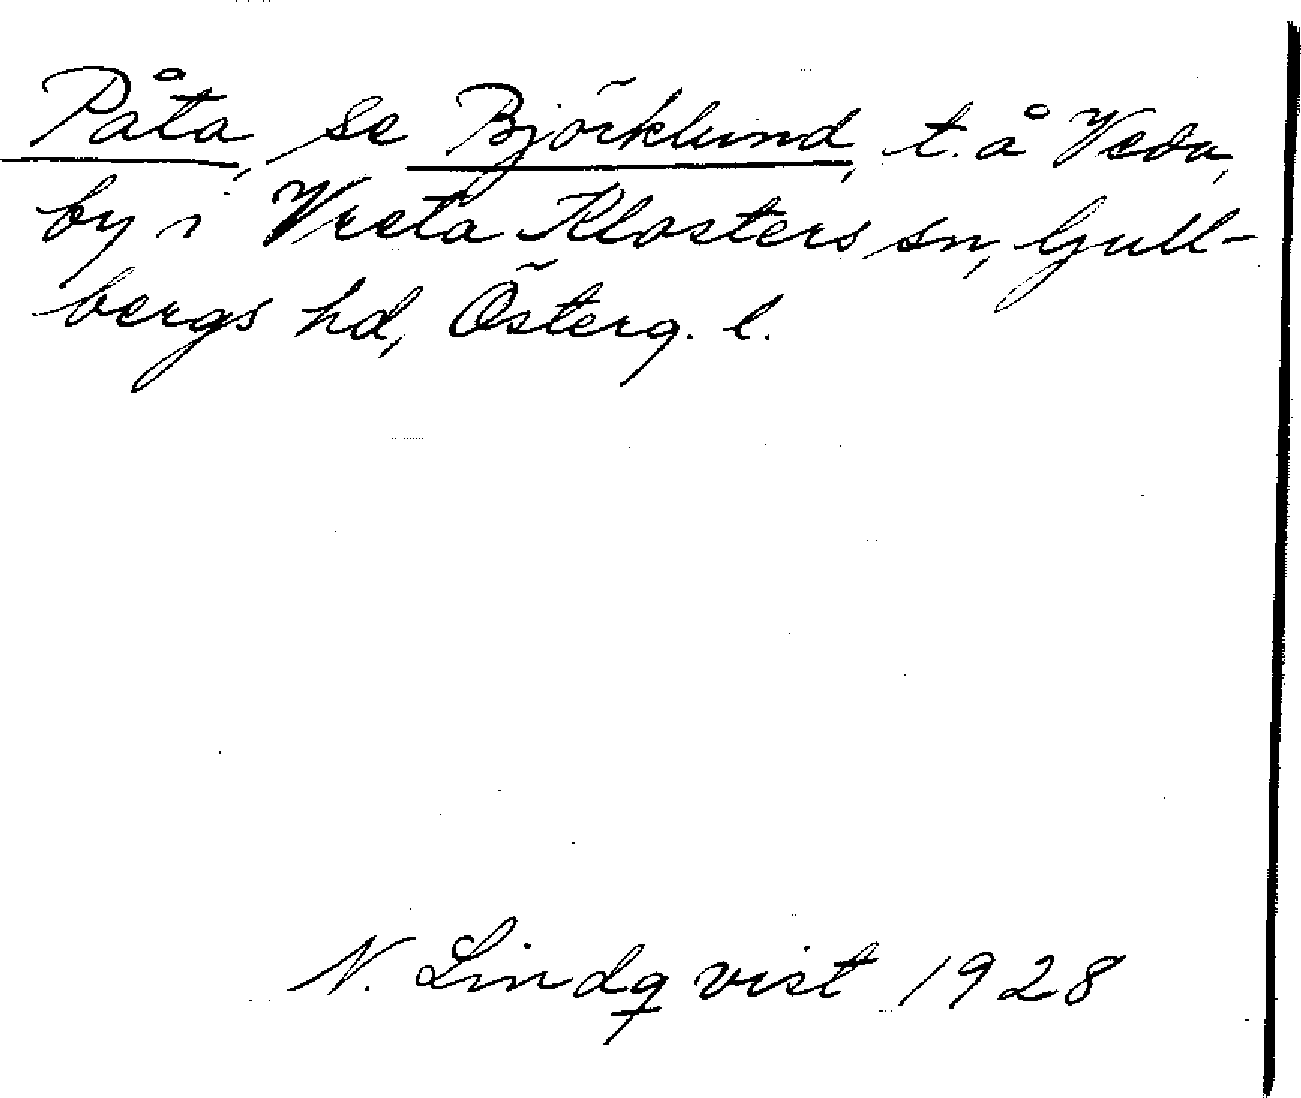 Påta, se Björklund, t. å Veda,
by i Vreta Klosters sn, Gull-
bergs hd, Österg. l.
N. Lindqvist 1928